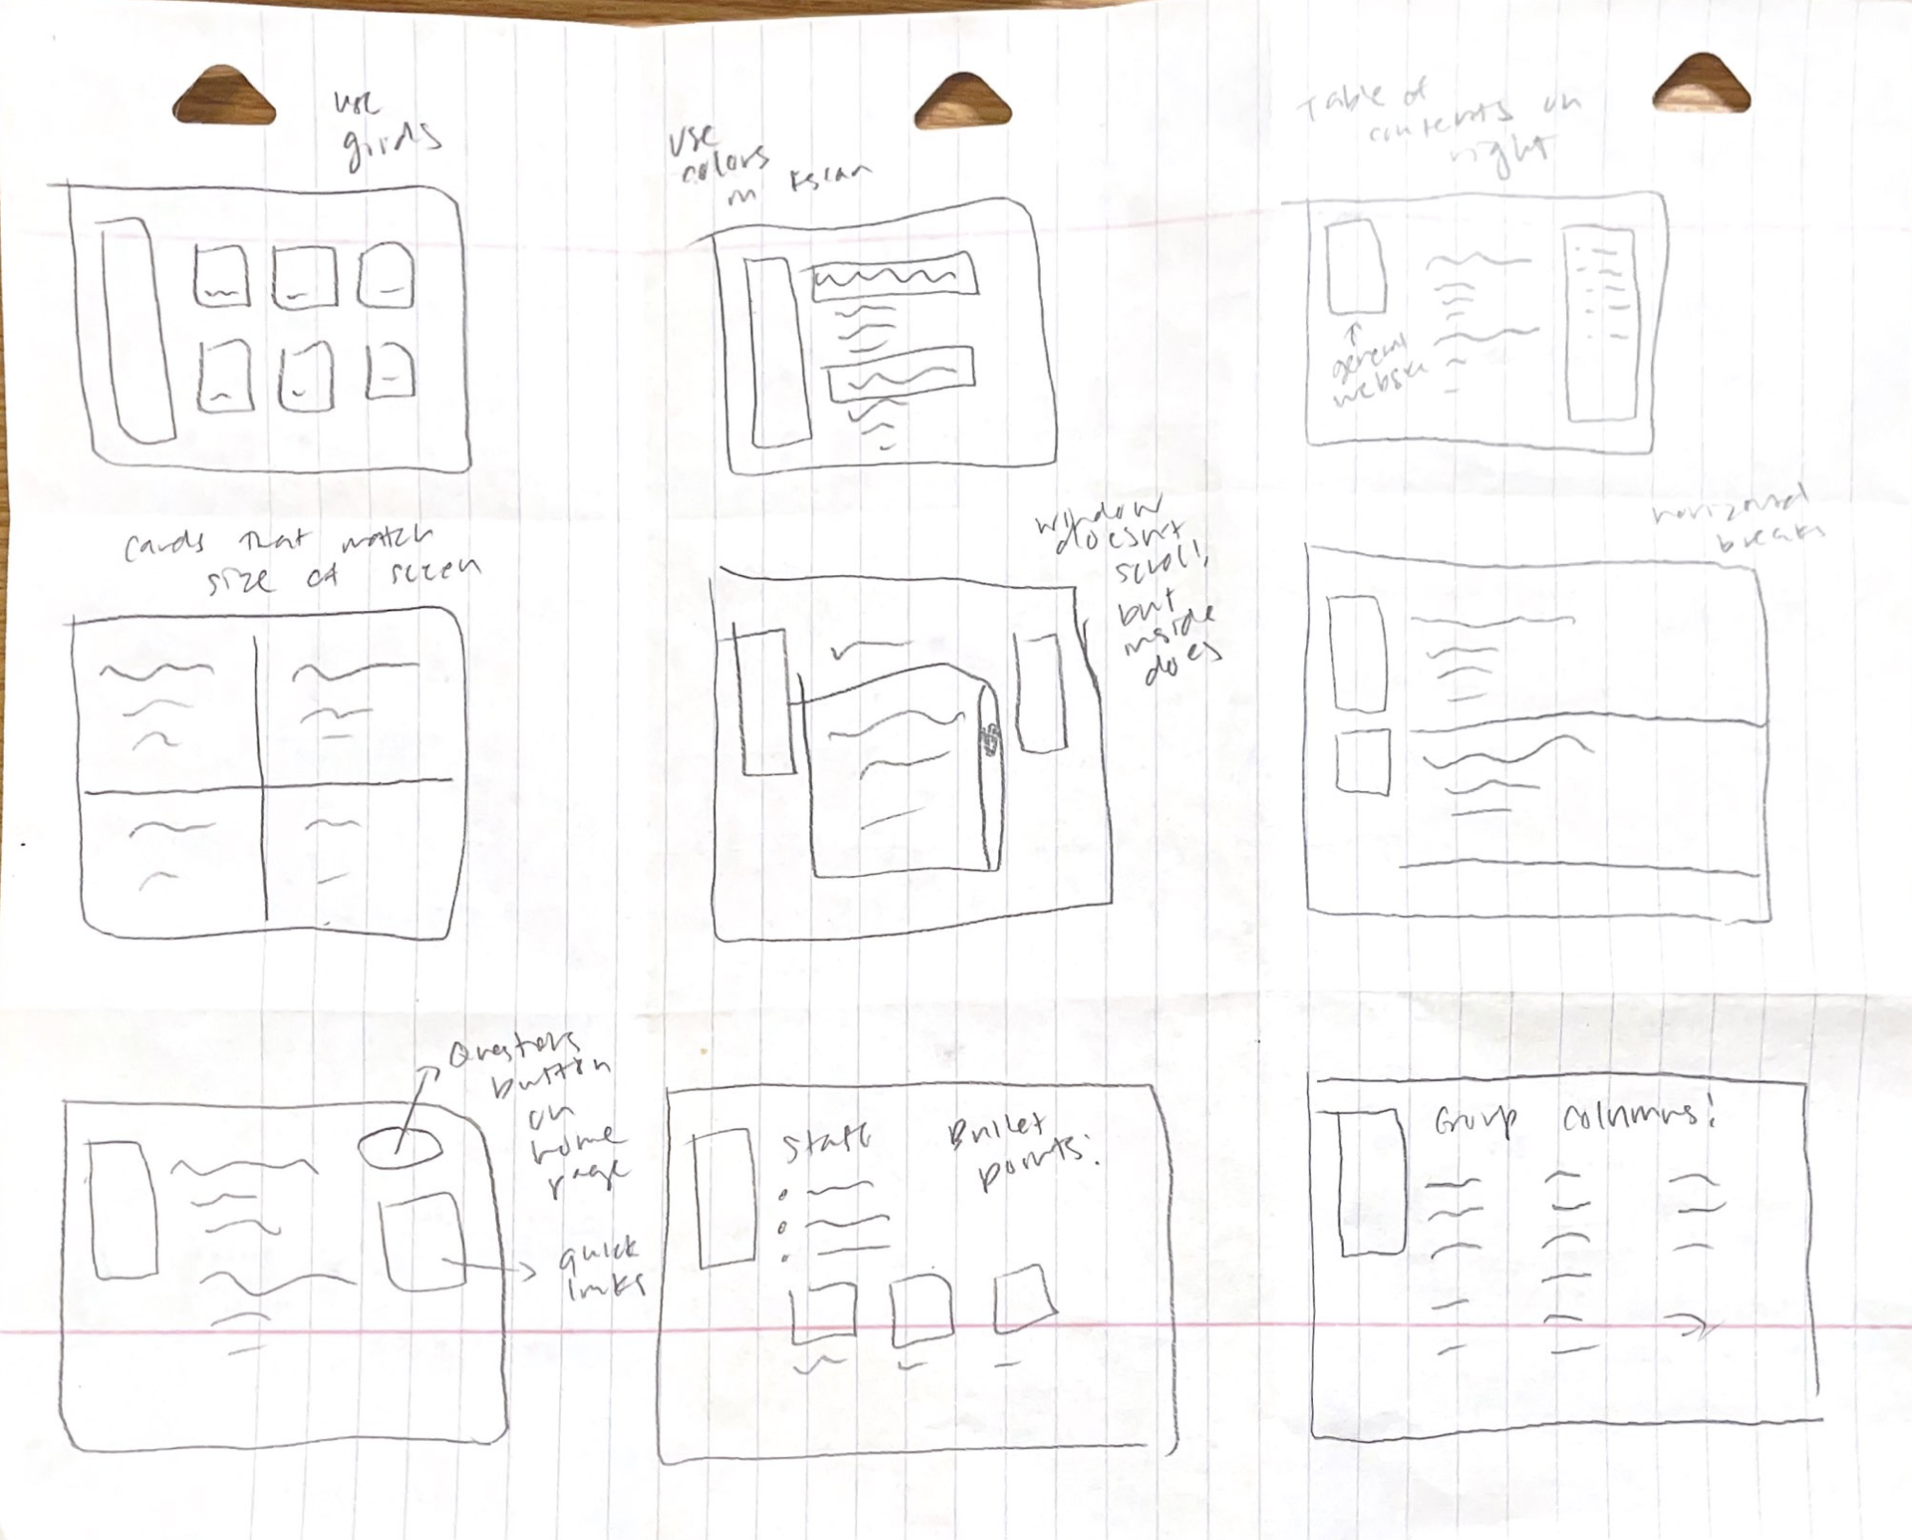 use
grids
use
colors
in
Table of
contents on
right
general
website
cards that match
size of screen
window
doesn't
scroll,
but
inside
does
horizontal
breaks
Questions
button
on
home
page
quick
links
Staff
Bullet
points:
Group columns!